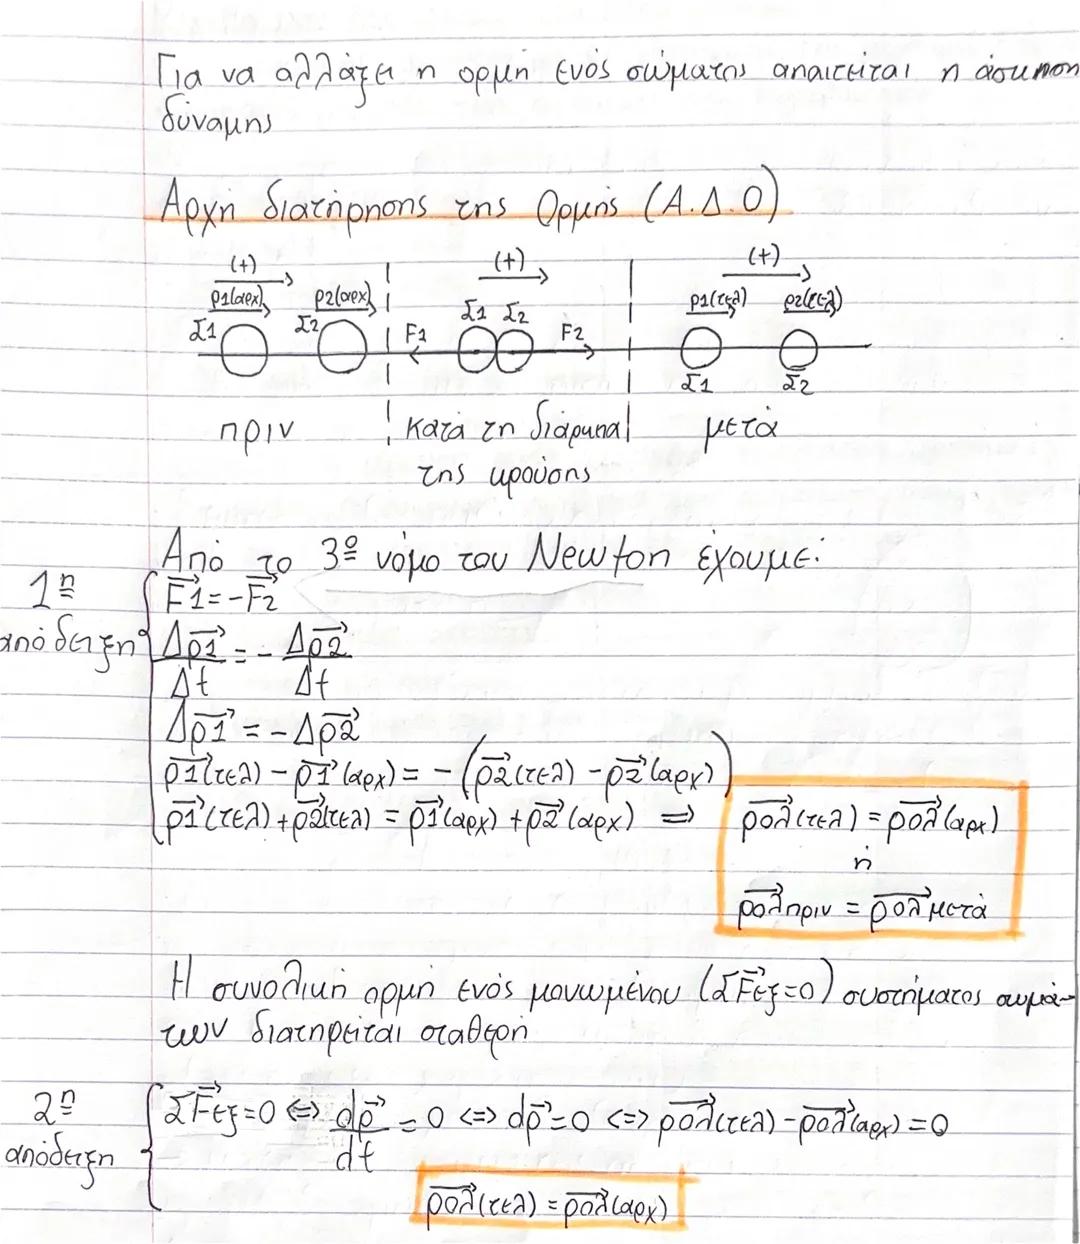 Για να αλλάξει η ορμή ενός σώματος απαιτείται η άσκηση
δύναμης
Αρχή διατήρησης της Ορμής (Α.Δ.Ο)
(+) (+) (+)
p1(αρχ) p2(αρχ) p1(τελ) p2(τελ)
Σ1 Σ2 F1 Σ1 Σ2 F2
Σ1 Σ2
πριν κατά τη διάρκεια μετά
της κρούσης
Από το 3º νόμο του Newton έχουμε:
1η απόδειξη
F⃗1 = -F⃗2
Δp⃗1/Δt = - Δp⃗2/Δt
Δp⃗1 = - Δp⃗2
p⃗1(τελ) - p⃗1(αρχ) = - (p⃗2(τελ) - p⃗2(αρχ))
p⃗1(τελ) + p⃗2(τελ) = p⃗1(αρχ) + p⃗2(αρχ) ⇒ p⃗ολ(τελ) = p⃗ολ(αρχ)
ή
p⃗ολ πριν = p⃗ολ μετά
Η συνολική ορμή ενός μονωμένου (ΣF⃗εξ=0) συστήματος σωμά-
των διατηρείται σταθερή
2η απόδειξη
ΣF⃗εξ=0 <=> dp⃗/dt = 0 <=> dp⃗=0 <=> p⃗ολ(τελ) - p⃗ολ(αρχ) = 0
p⃗ολ(τελ) = p⃗ολ(αρχ)